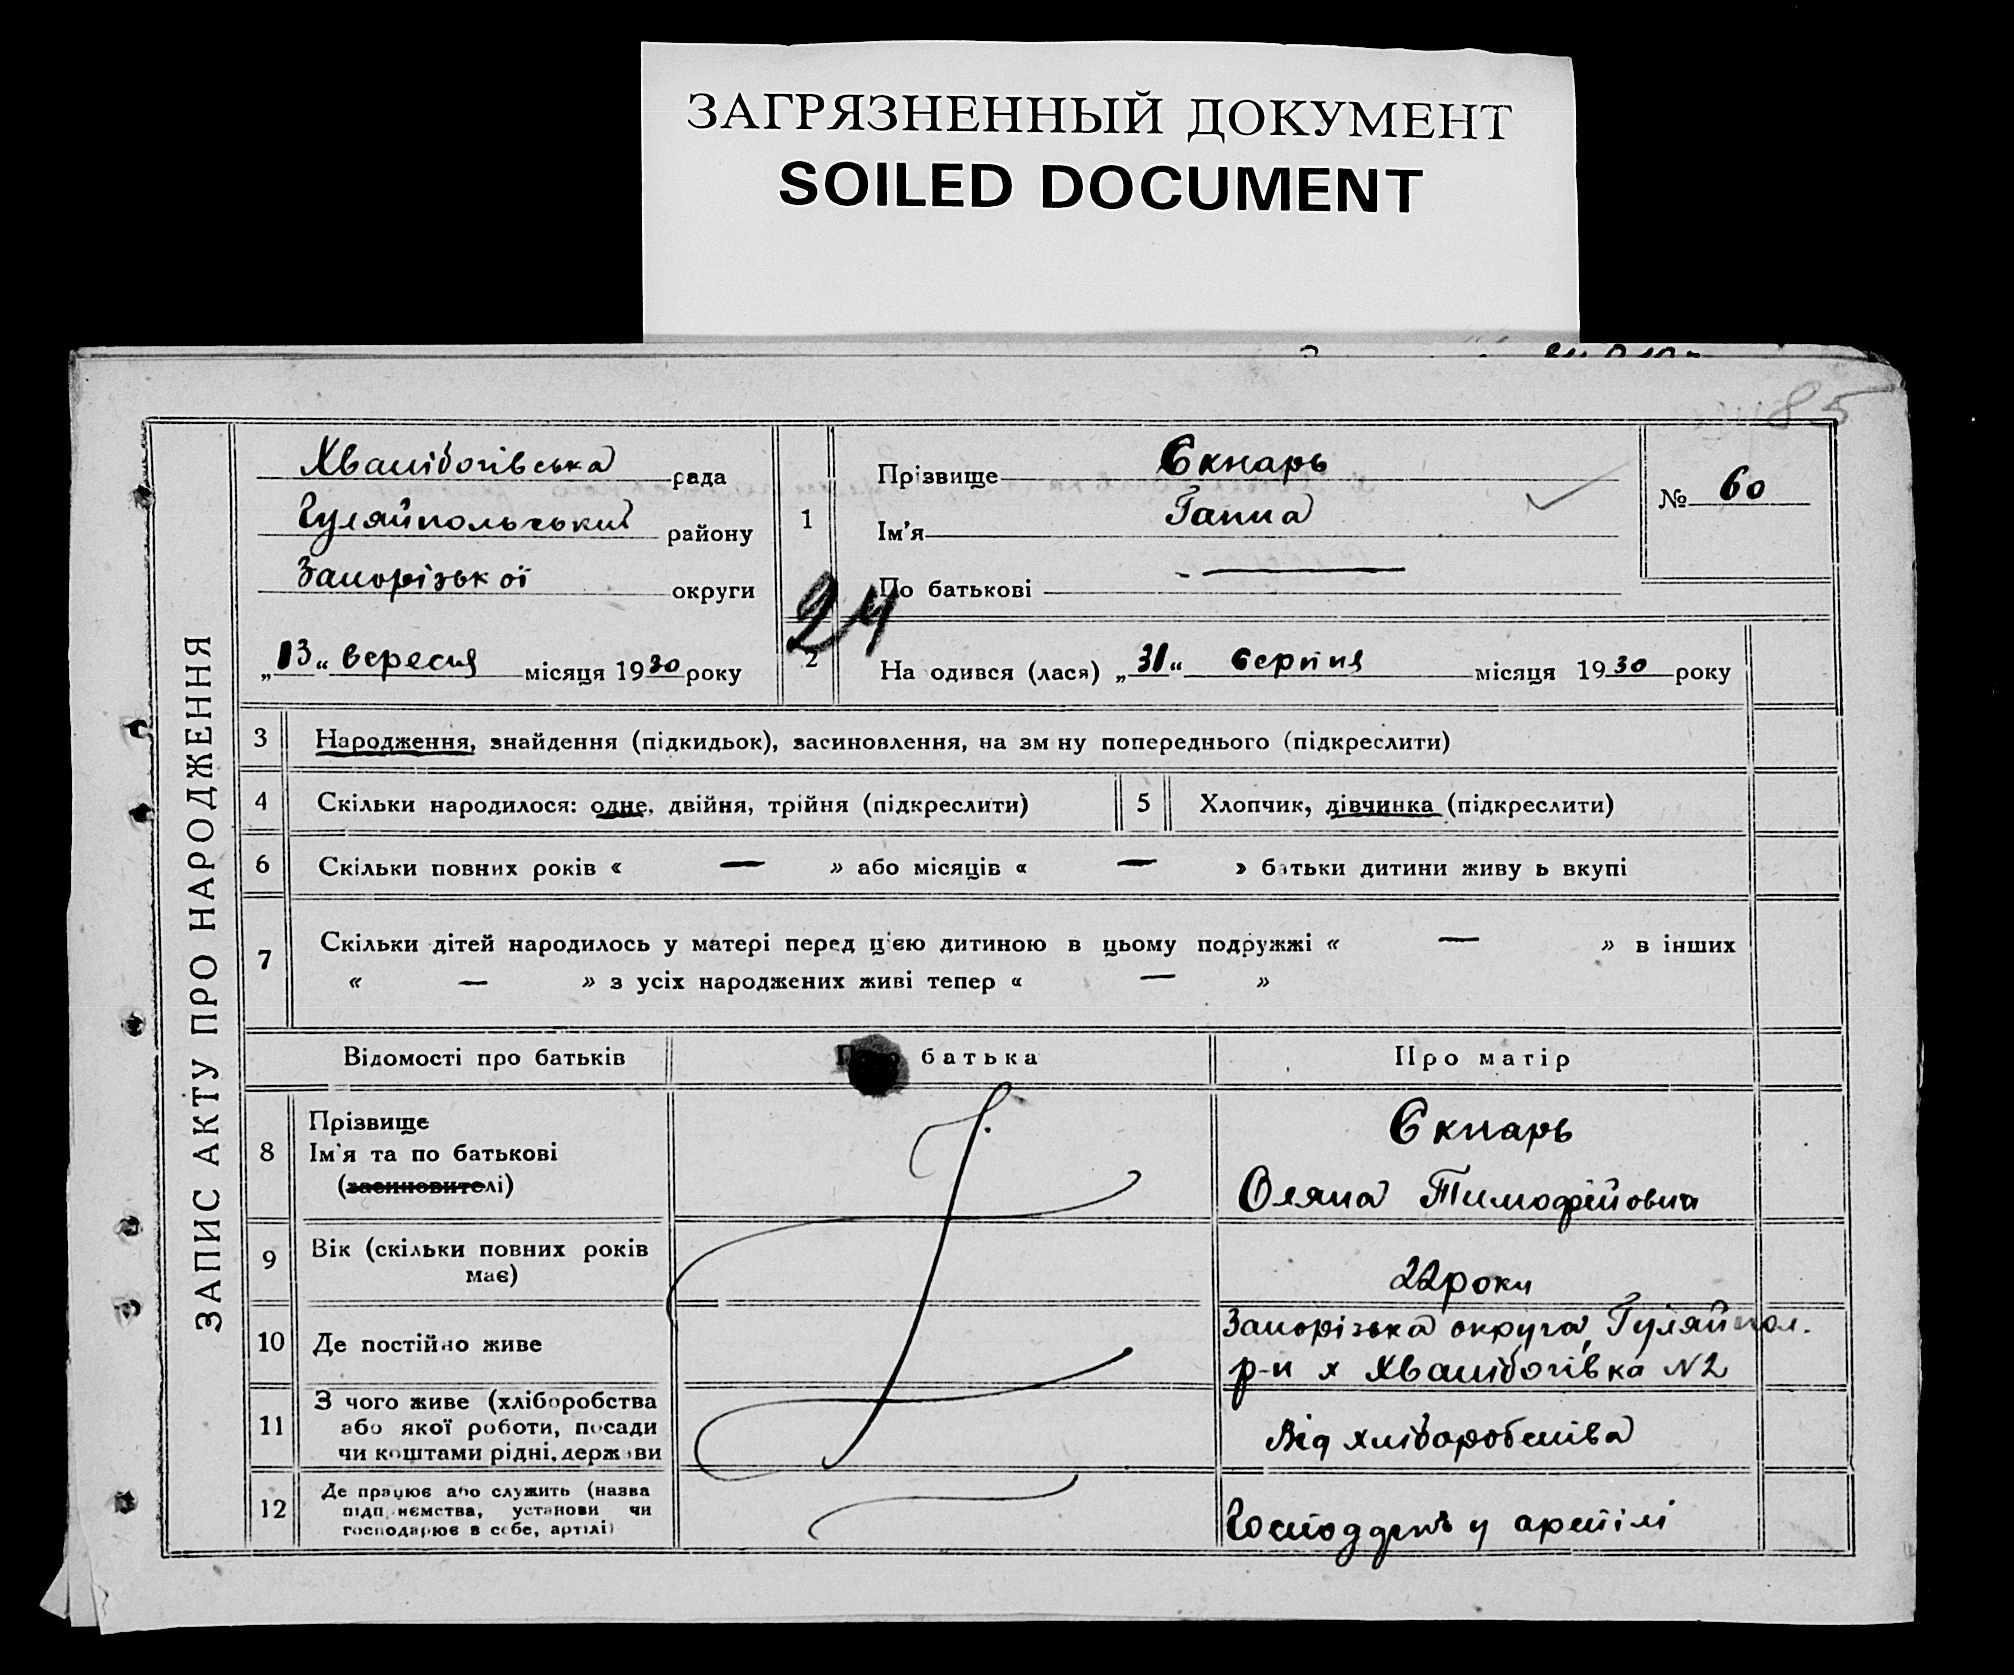 ЗАГРЯЗНЕННЫЙ ДОКУМЕНТ
SOILED DOCUMENT
85
ЗАПИС АКТУ ПРО НАРОДЖЕННЯ
Хвалібогівська рада
Гуляйпольський району
Запорізької округи
„13“ вересня місяця 1930 року
1
Прізвище Єкнарь
Ім'я Ганна
По батькові —
№ 60
24
2
На одився (лася) „31“ серпня місяця 1930 року
3 Народження, знайдення (підкидьок), засиновлення, на зм ну попереднього (підкреслити)
4 Скільки народилося: одне, двійня, трійня (підкреслити) 5 Хлопчик, дівчинка (підкреслити)
6 Скільки повних років « — » або місяців « — » батьки дитини живу ь вкупі
7 Скільки дітей народилось у матері перед цією дитиною в цьому подружжі « — » в інших
« — » з усіх народжених живі тепер « — »
Відомості про батьків Про батька Про матір
8 Прізвище
Ім'я та по батькові
(засиновителі)
Єкнарь
Оляна Тимофійовна
9 Вік (скільки повних років
має)
22 роки
10 Де постійно живе
Запорізька округа, Гуляйпол.
р-н х Хвалібогівка N2
11 З чого живе (хліборобства
або якої роботи, посади
чи коштами рідні, держави
Від хліборобства
12 Де працює або служить (назва
підп иємства, установи чи
господарює в себе, артілі)
у артілі